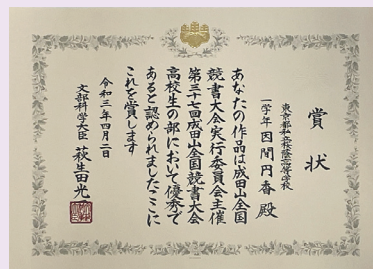 賞状
東京都私立桜蔭高等学校
一学年 因間円香 殿
あなたの作品は成田山全国
競書大会実行委員会主催
第三十七回成田山全国競書大会
高校生の部において優秀で
あると認められましたここに
これを賞します
令和三年四月二日
文部科学大臣 萩生田光一